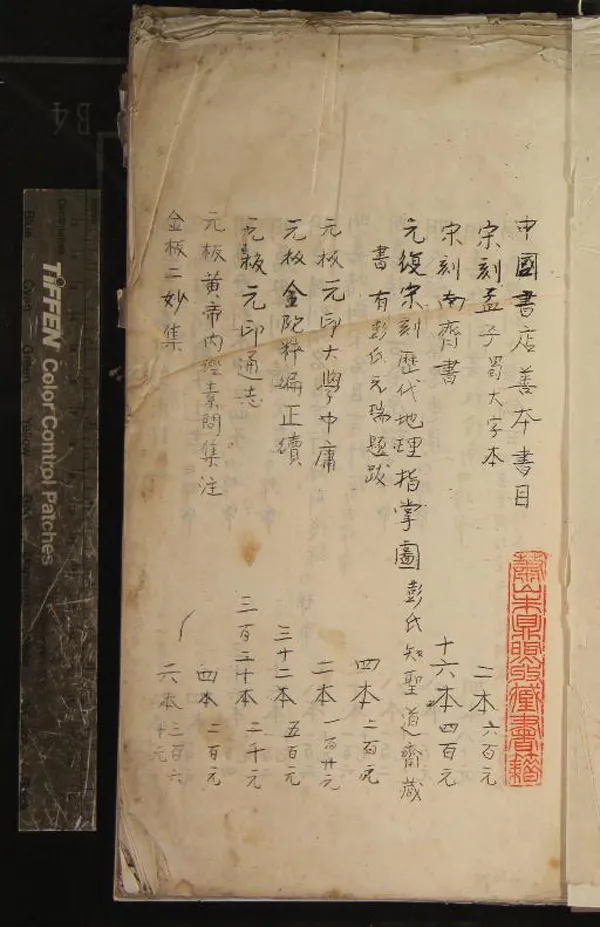 中國書店善本書目
宋刻孟子 蜀大字本 二本 六百元
宋刻南齊書 十六本 四百元
元復宋刻歷代地理指掌圖 彭氏知聖道齋藏
書 有彭氏元瑞題跋 四本 二百元
元板元印大學中庸 二本 一百廿元
元板金陀粹編正續 三十二本 五百元
元板元印通志 三百二十本 二千元
元板黃帝內經素問集注 四本 二百元
金板二妙集 六本 三百六十元
蕭山朱鼎煦所藏書籍
TIFFEN Color Control Patches
B4